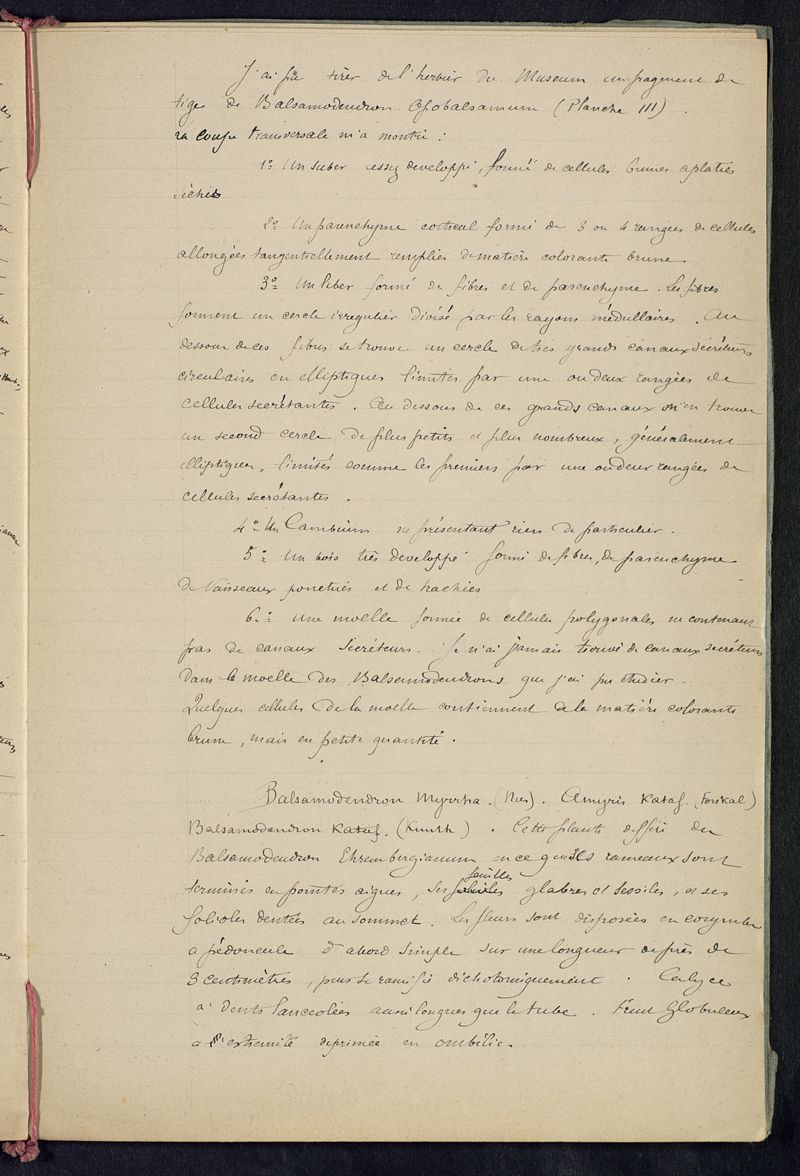 J'ai pu tirer de l'herbier du Museum un fragment de
tige de Balsamodendron Opobalsamum (Planche III).
sa coupe transversale m'a montré :
1º Un suber assez developpé, formé de cellules brunes aplaties
séchés
2º Un parenchyme cortical formé de 3 ou 4 rangées de cellules
allongées tangentiellement remplies de matière colorante brune.
3º Un liber formé de fibres et de parenchyme. Les fibres
forment un cercle irregulier divisé par les rayons médullaires. Au
dessous de ces fibres se trouve un cercle de très grands canaux sécréteurs
circulaires ou elliptiques limités par une ou deux rangées de
cellules secrétantes. Au dessous de ces grands canaux on en trouve
un second cercle de plus petits et plus nombreux, généralement
elliptiques, limités comme les premiers par une ou deux rangées de
cellules secrétantes.
4º Un Cambium ne présentant rien de particulier.
5º Un bois très developpé formé de fibres, de parenchyme
de vaisseaux ponctués et de trachées
6º Une moelle formée de cellules polygonales ne contenant
pas de canaux sécréteurs. Je n'ai jamais trouvé de canaux secréteurs
dans la moelle des Balsamodendrons que j'ai pu étudier.
Quelques cellules de la moelle contiennent de la matière colorante
brune, mais en petite quantité.
Balsamodendron Myrrha. (Nees). Amyris Kataf. (Forskal)
Balsamodendron Kataf. (Kunth). Cette plante diffère du
Balsamodendron Ehrembergianum en ce que ses rameaux sont
terminés en pointes aigues, ses feuilles glabres et sessiles, et ses
folioles dentées au sommet. Les fleurs sont disposées en corymbe
a pédoncule d'abord simple sur une longueur de près de
3 centimètres, puis se ramifie dichotomiquement. Calyce
à dents lanceolées aussi longues que le tube. Fruit Globuleux
a l'extremité deprimée en ombilic.